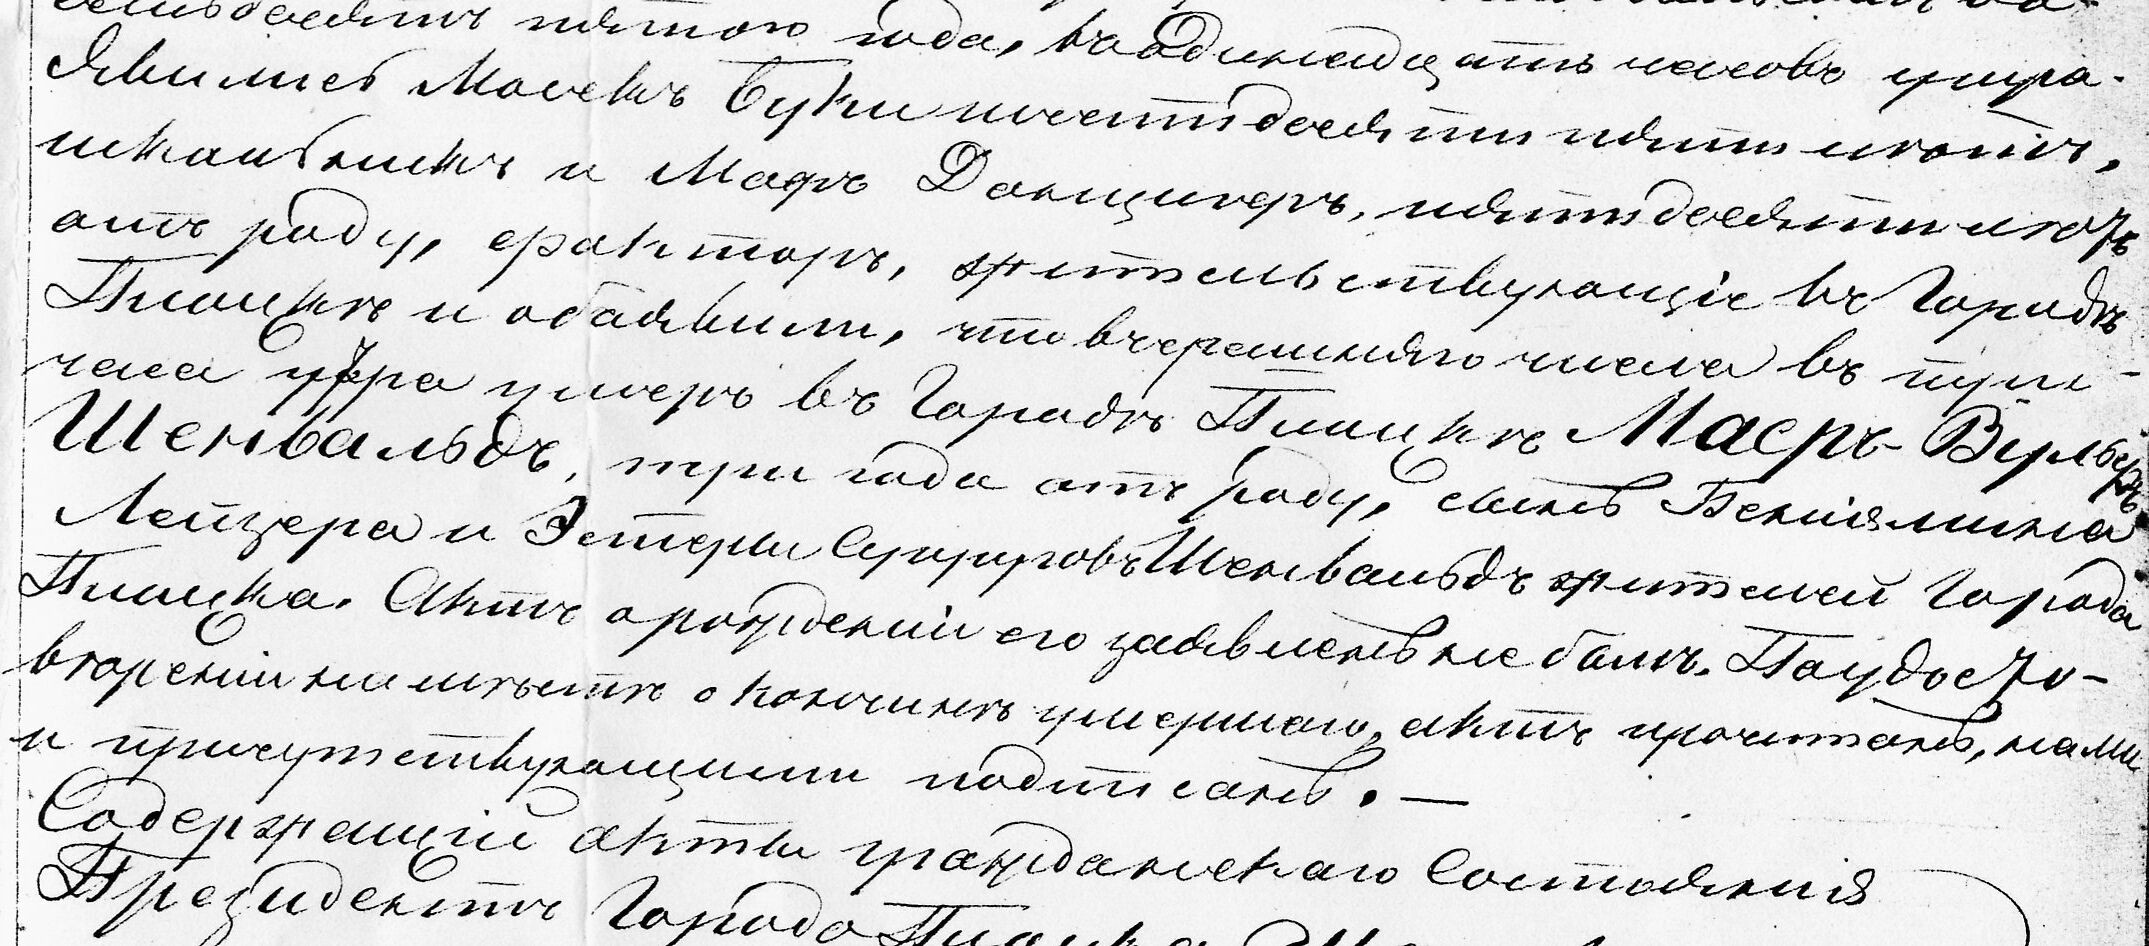 семьдесятъ пятого года, въ одинадцать часовъ утра.
Явились Мосекъ Буки шестьдесяти пяти лѣтъ,
школьникъ и Маеръ Данцигеръ, пятьдесяти лѣтъ
отъ роду, факторъ, жительствующіе въ Городѣ
Плоцкѣ и объявили, что вчерашняго числа въ три
часа утра умеръ въ Городѣ Плоцкѣ Маеръ-
Шенвальдъ, три года отъ роду, сынъ Беніямина
Лейзера и Эстеры Супруговъ Шенвальдъ жителей Города
Плоцка. Актъ о рожденіи его заявленъ не былъ. По удосто-
вѣреніи на мѣстѣ о кончинѣ умершаго, актъ прочитанъ, нами
и присутствующими подписанъ. —
Содержащій акты гражданскаго Состоянія
Президентъ Города Плоцка